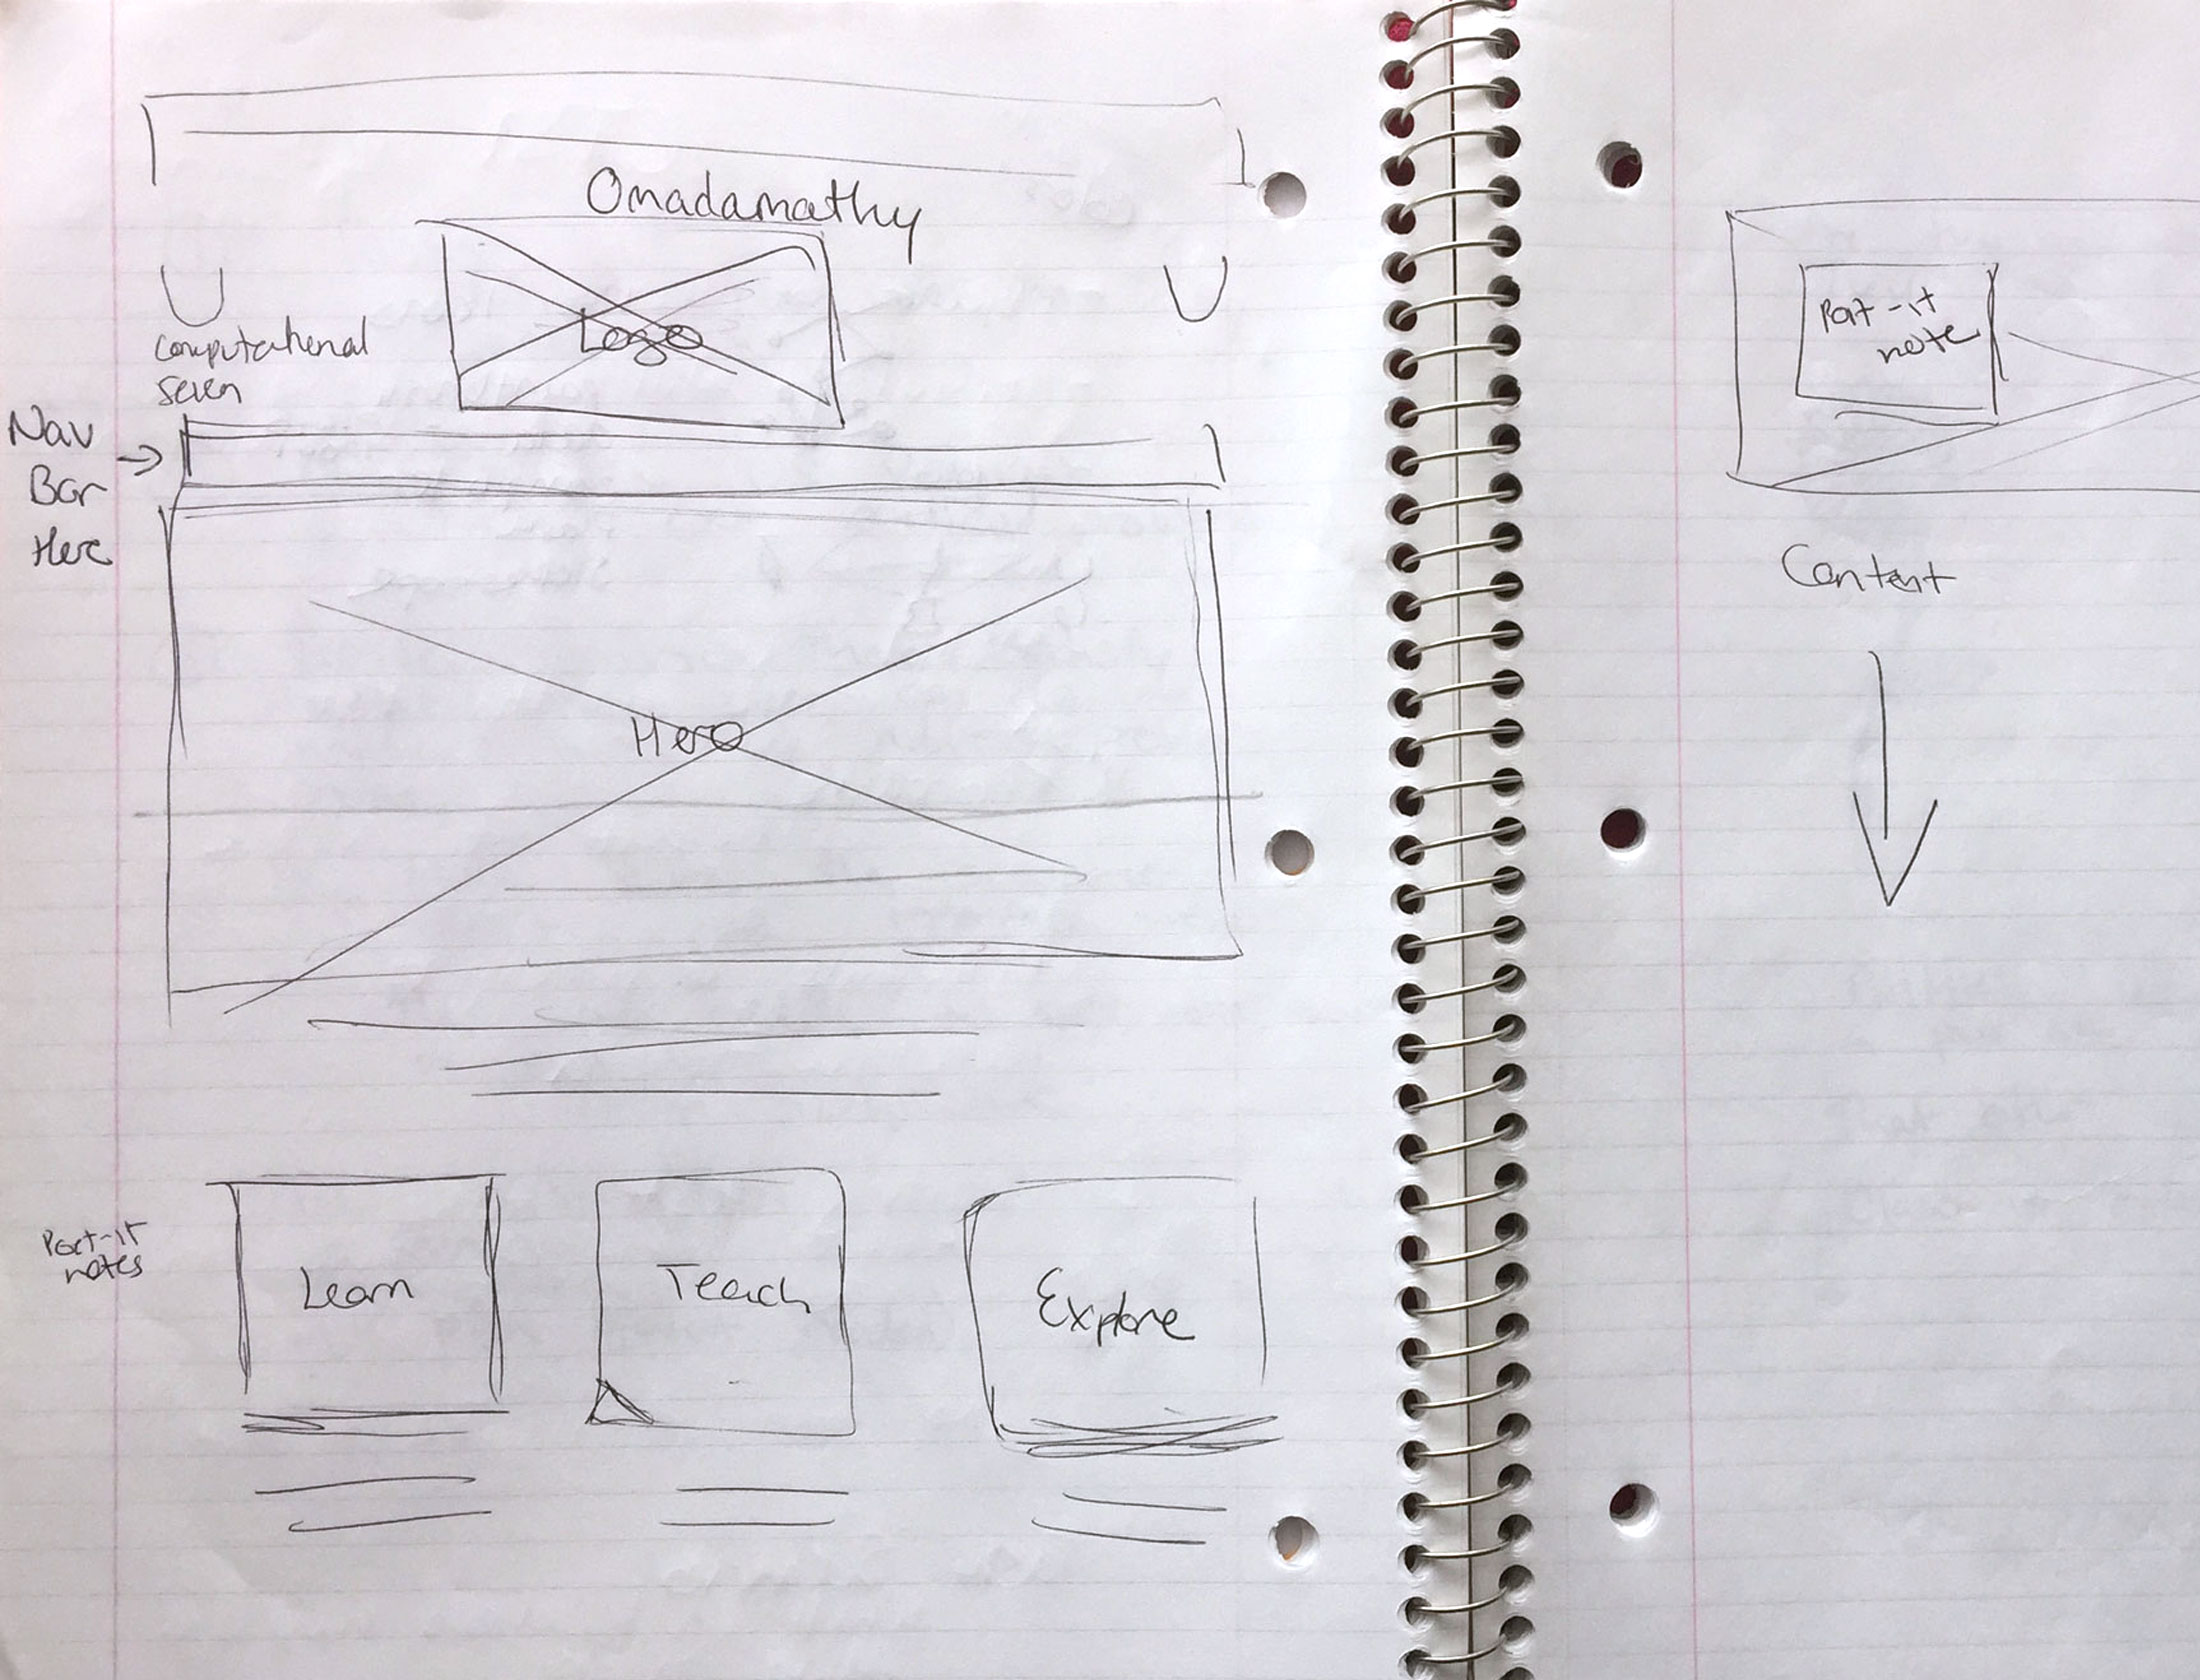 Omadamathy
Logo
computational
seven
Nav
Bar
Here
Hero
Post-it
notes
Learn
Teach
Explore
Post-it
note
Content